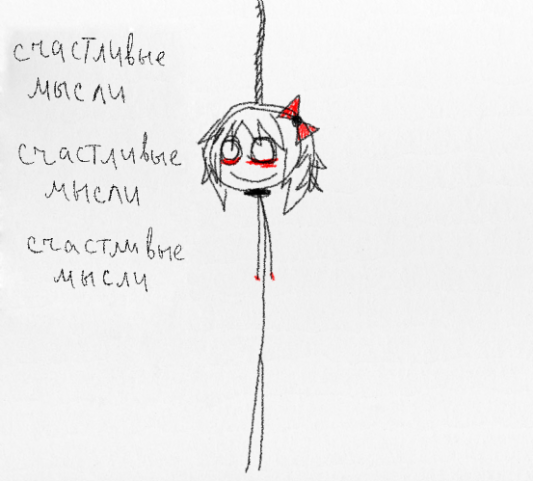 счастливые
мысли
счастливые
мысли
счастливые
мысли